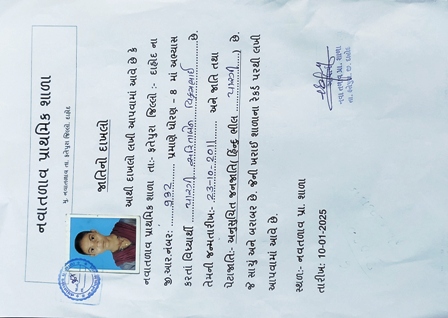 નવાતળાવ પ્રાથમિક શાળા
મુ. નવાતળાવ તા. ફતેપુરા જિલ્લો. દાહોદ
જાતિનો દાખલો
આથી દાખલો લખી આપવામાં આવે છે કે
નવાતળાવ પ્રાથમિક શાળા તા:- ફતેપુરા જિલ્લો :- દાહોદ ના
જી.આર.નંબર: ૭૬૨ પ્રમાણે ધોરણ - 8 માં અભ્યાસ
કરતાં વિધાર્થી પારગી છે.
તેમની જન્મતારીખ:- 23-10-2011 અને જાતિ તથા
પેટાજાતિ:- અનુસુચિત જનજાતિ( હિન્દુ ભીલ પારગી ) છે.
જે સાચું અને બરાબર છે. જેની ખરાઈ શાળાના રેકર્ડ પરથી લખી
આપવામાં આવે છે.
સ્થળ:- નવાતળાવ પ્રા. શાળા
તારીખ: 10-01-2025
નવાતળાવ પ્રા. શાળા